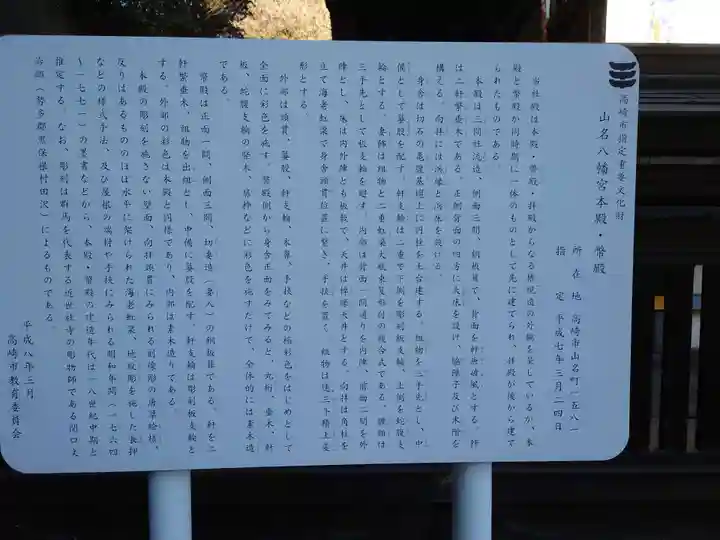 高崎市指定重要文化財
山名八幡宮本殿・幣殿
所在地 高崎市山名町一五八一
指定 平成七年三月二四日
当社殿は本殿・幣殿・拝殿からなる権現造の外観を呈しているが、本
殿と幣殿が同時期に一体のものとして先に建てられ、拝殿が後から建て
られたものである。
本殿は三間社流造、側面三間、銅板葺で、背面を軒唐破風とする。作
は二軒繁垂木である。正側背面の四方に大床を設け、脇障子及び木階を
構える。向拝には浜縁と浜床を設ける。
身舎は切石の亀腹基壇上に円柱を土台建する。組物を二手先とし、中
備として蟇股を配す。軒支輪は二重で下側を彫刻板支輪、上側を蛇腹支
輪とする。妻飾は組物と二重虹梁大瓶束笈形付の複合式である。腰組は
三手先として板支輪を廻す。内部は背面一間通りを内陣、前面二間を外
陣とし、床は内外陣とも板敷で、天井は棹縁天井とする。向拝は角柱を
立て海老虹梁で身舎頭貫位置に繋ぎ、手挟を置く。組物は連三斗積上変
形とする。
外部は頭貫、蟇股、軒支輪、木鼻、手挟などの極彩色をはじめとして
全面に彩色を施す。幣殿側から身舎正面をみてみると、丸桁、垂木、軒
板、蛇腹支輪の竪木、扉枠などに彩色を施すだけで、全体的には素木造
である。
幣殿は正面一間、側面三間、切妻造（妻入）の銅板葺である。軒を二
軒繁垂木、組物を出組とし、中備に蟇股を配す。軒支輪は彫刻板支輪と
する。外部の彩色は本殿と同様であり、内部は素木造りである。
本殿の彫刻を施さない壁面、向拝頭貫にみられる刻線彫の唐草絵様、
反りはあるもののほぼ水平に架けられた海老虹梁、地紋彫を施した長押
などの様式手法、及び屋根の端材や手挟にみられる明和年間（一七六四
～一七七一）の墨書などから、本殿・幣殿の建造年代は一八世紀中期と
推定する。なお、彫刻は群馬を代表する近世社寺の彫物師である関口文
治郎（勢多郡黒保根村田沢）によるものである。
平成八年三月
高崎市教育委員会